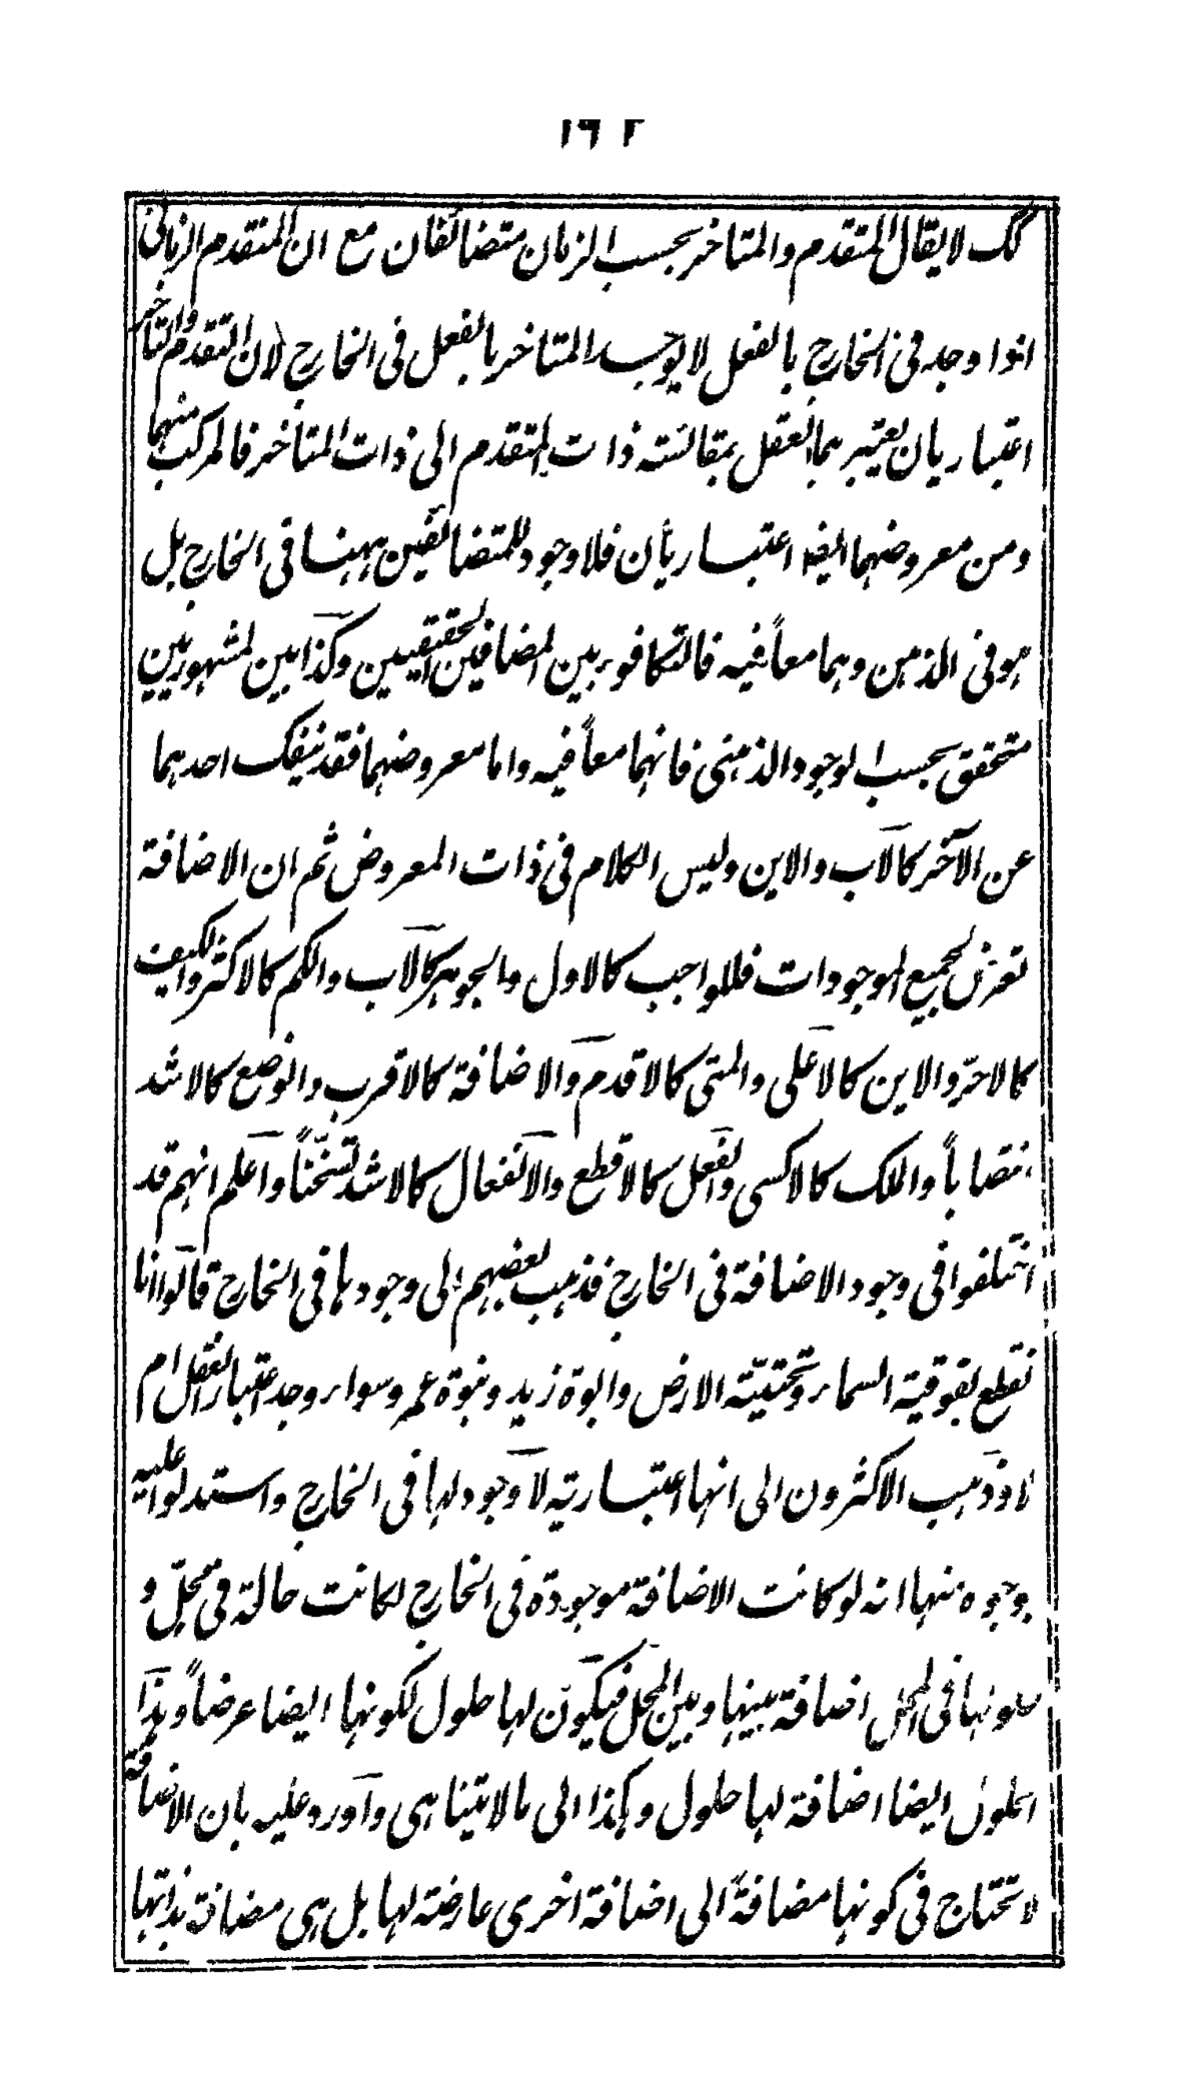 ١٦٢
لك لا يقال المتقدم والمتاخر بحسب الزمان متضائفان مع ان المتقدم الزمانى
اذا وجد فى الخارج بالفعل لا يوجد المتاخر بالفعل فى الخارج لان التقدم والتاخر
اعتباريان يعتبرهما العقل بمقائسته ذات المتقدم الى ذات المتاخر فالمركب منهما
ومن معروضهما ايضا اعتباريان فلا وجود للمتضائفين ههنا فى الخارج بل
هو فى الذهن وهما معاً فيه فالتكافوء بين المضافين الحقيقيين وكذا بين المشهوريين
متحقق بحسب الوجود الذهنى فانهما معاً فيه واما معروضهما فقد ينفك احدهما
عن الآخر كالاب والابن وليس الكلام فى ذات المعروض ثم ان الاضافة
تعرض لجميع الموجودات فللواجب كالاول والجوهر كالاب والكم كالاكثر والكيف
كالاحرّ والاين كالاعلى والمتى كالاقدم والاضافة كالاقرب والوضع كالاشد
انتصاباً والملك كالاكسى والفعل كالاقطع والانفعال كالاشد تسخّناً واعلم انهم قد
اختلفوا فى وجود الاضافة فى الخارج فذهب بعضهم الى وجودها فى الخارج قالوا انا
نقطع بفوقية السماء وتحتيّة الارض وابوة زيد وبنوة عمرو سواء وجد اعتبار العقل ام
لا وذهب الاكثرون الى انها اعتبارية لا وجود لها فى الخارج واستدلوا عليه
بوجوه منها انه لو كانت الاضافة موجودة فى الخارج لكانت حالة فى محلّ و
حلولها فى المحل اضافة بينها وبين المحل فيكون لها حلول لكونها ايضا عرضاً وهذا
الحلول ايضا اضافة لها حلول وهكذا الى ما لا يتناهى واورد عليه بان الاضافة
لا تحتاج فى كونها مضافةً الى اضافة اخرى عارضة لها بل هى مضافة بذاتها